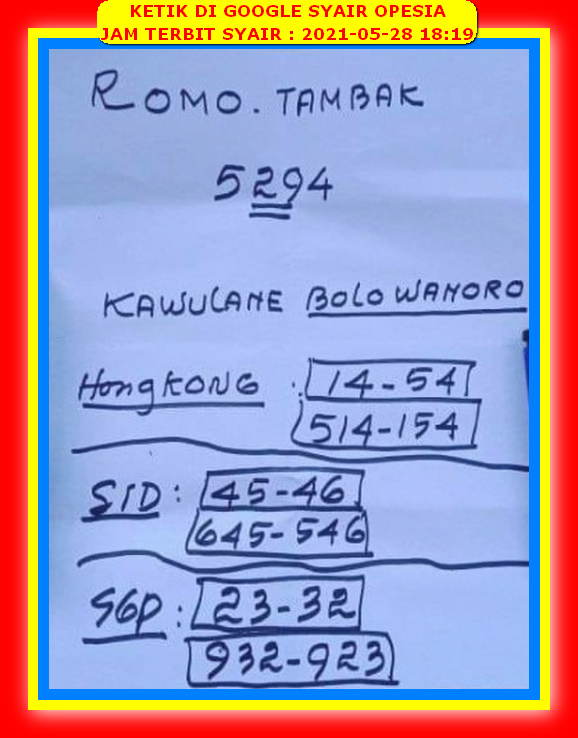 KETIK DI GOOGLE SYAIR OPESIA
JAM TERBIT SYAIR : 2021-05-28 18:19
ROMO. TAMBAK
5294
KAWULANE BOLO WANORO
HongKONG : 14-54
514-154
SID : 45-46
645-546
SGP : 23-32
932-923